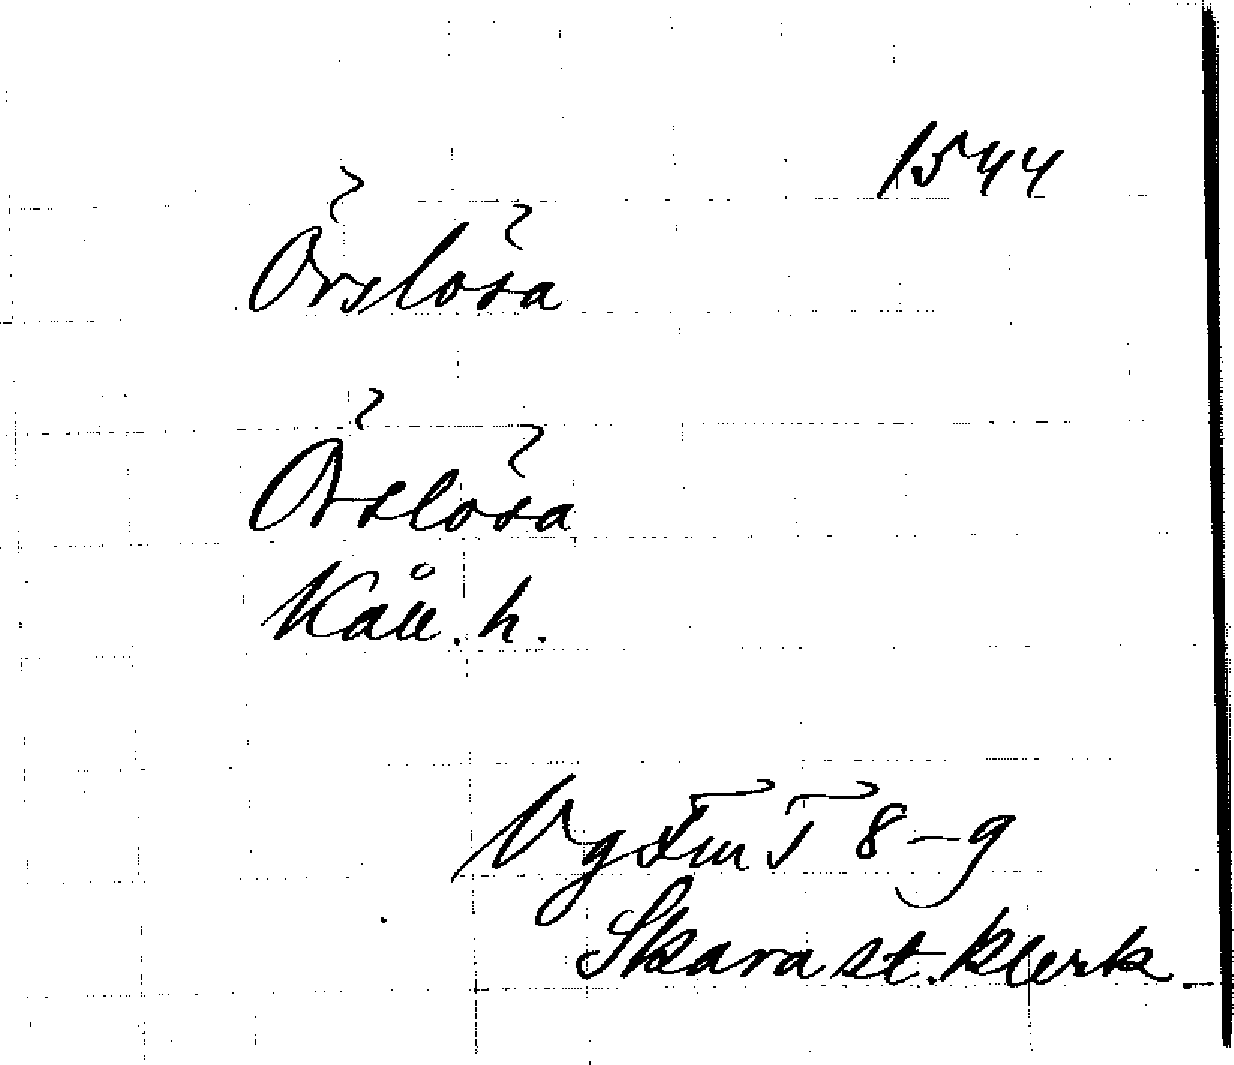 1544
Örslösa
Örslösa
Kåll. h.
Vg Fm T 8-9
Skara st. klerk.